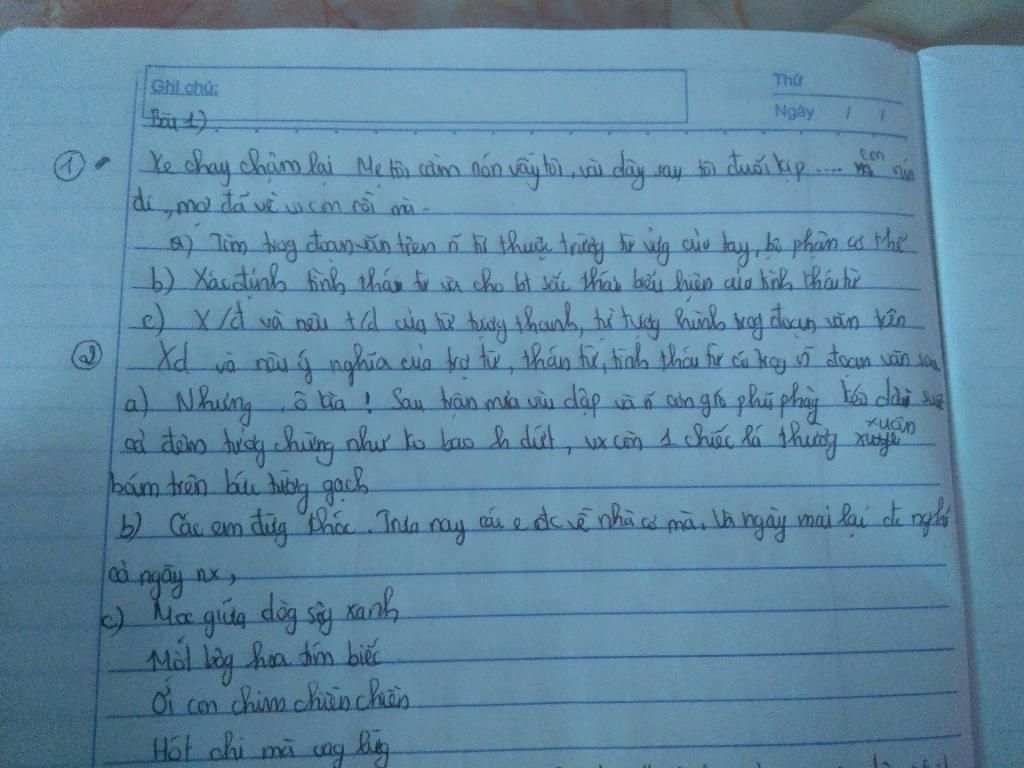 Ghi chú:
Thứ
Ngày / /
Bài 1)
① Xe chạy chậm lại Mẹ tôi cầm nón vẫy tôi, vài dây sau tôi đuổi kịp .... con nín
đi, mợ đã về vs con rồi mà.
a) Tìm trog đoạn văn trên ~ từ thuộc trường từ vựg của tay, bộ phận cơ thể
b) Xác định tình thái từ và cho bt sắc thái biểu hiện của tình thái từ
c) X/đ và nêu t/d của từ tượg thanh, từ tượg hình trog đoạn văn trên
② Xđ và nêu ý nghĩa của trợ từ, thán từ, tình thái từ có trog đoạn văn sau
a) Nhưng, ô kìa! Sau trận mưa vùi dập và ~ cơn gió phũ phàg kéo dài suốt
cả đêm tưởg chừng như ko bao h dứt, vx còn 1 chiếc lá thườg xuân
bám trên bức tườg gạch
b) Các em đừg khóc. Trưa nay các e đc về nhà cơ mà. Và ngày mai lại đc nghỉ
cả ngày nx,
c) Mọc giữa dòg sôg xanh
Một bôg hoa tím biếc
Ơi con chim chiền chiện
Hót chi mà vag lừg